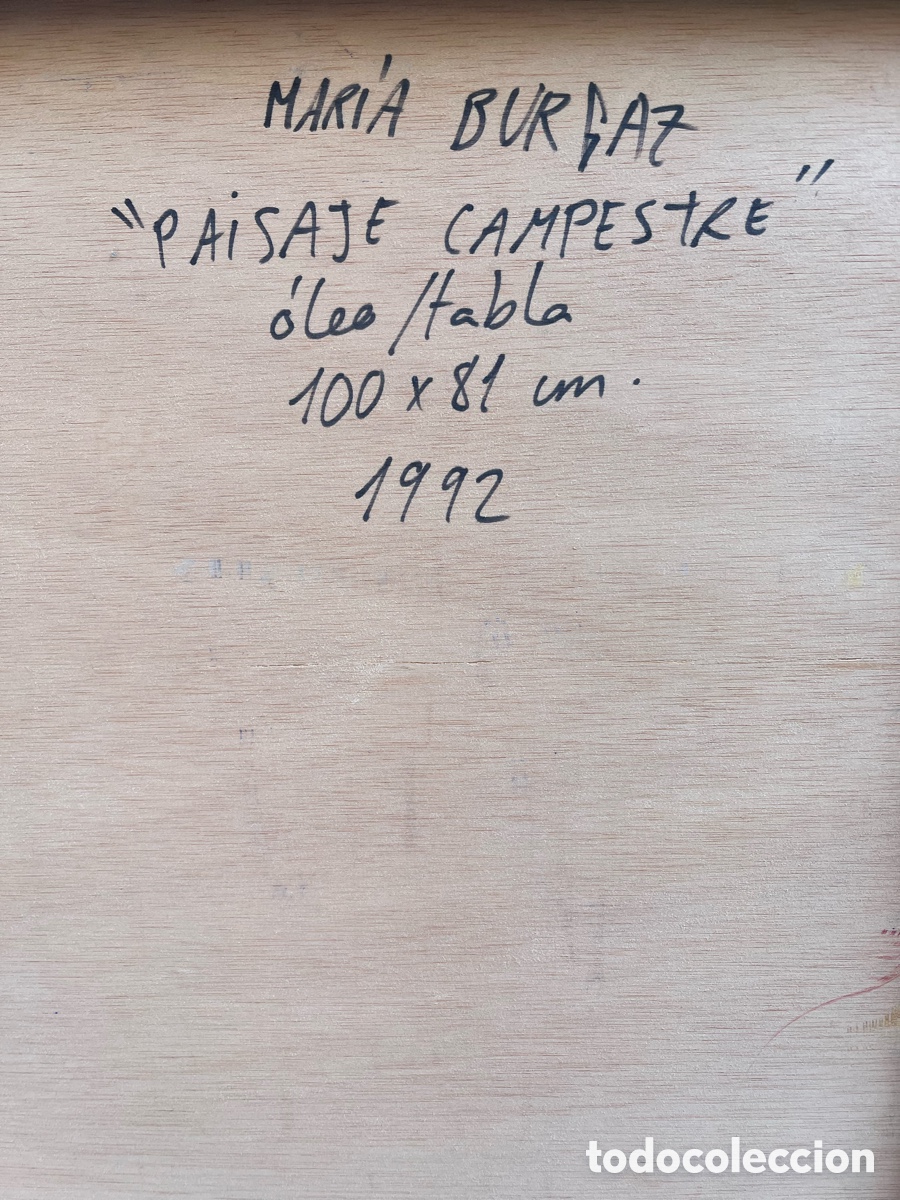 MARÍA BURGAZ
"PAiSAJE CAMPESTRE"
óleo/tabla
100 x 81 cm.
1992
todocoleccion